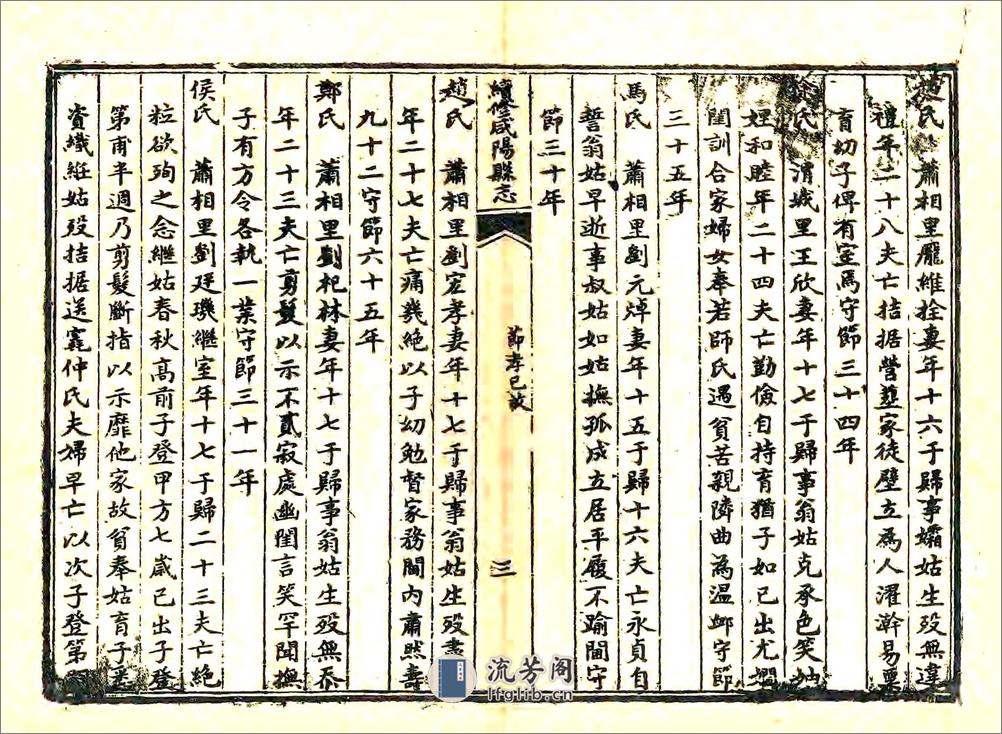 氏　蕭相里龐維拴妻年十六于歸事孀姑生歿無違
禮年二十八夫亡拮据營葬家徒壁立為人濯澣易粟
育幼子俾有室焉守節三十四年
氏　渭城里王欣妻年十七于歸事翁姑克承色笑妯
娌和睦年二十四夫亡勤儉自持育猶子如已出尤嫺
閨訓合家婦女奉若師氏遇貧苦親隣曲為溫卹守節
三十五年
馬氏　蕭相里劉元焯妻年十五于歸十六夫亡永貞自
誓翁姑早逝事叔姑如姑撫孤成立居平履不踰閾守
節三十年
續修咸陽縣志
節孝已故
三
趙氏　蕭相里劉宏孝妻年十七于歸事翁姑生歿盡
年二十七夫亡痛幾絕以子幼勉督家務閫內肅然壽
九十二守節六十五年
鄭氏　蕭相里劉杞林妻年十七于歸事翁姑生歿無忝
年二十三夫亡剪髮以示不貳寂處幽閨言笑罕聞撫
子有方令各執一業守節三十一年
侯氏　蕭相里劉廷璣繼室年十七于歸二十三夫亡絕
粒欲殉之念繼姑春秋高前子登甲方七歲已出子登
第甫半週乃剪髮斷指以示靡他家故貧奉姑育子悉
資織絍姑歿拮据送窀仲氏夫婦早亡以次子登第
流芳阁
lfglib.cn